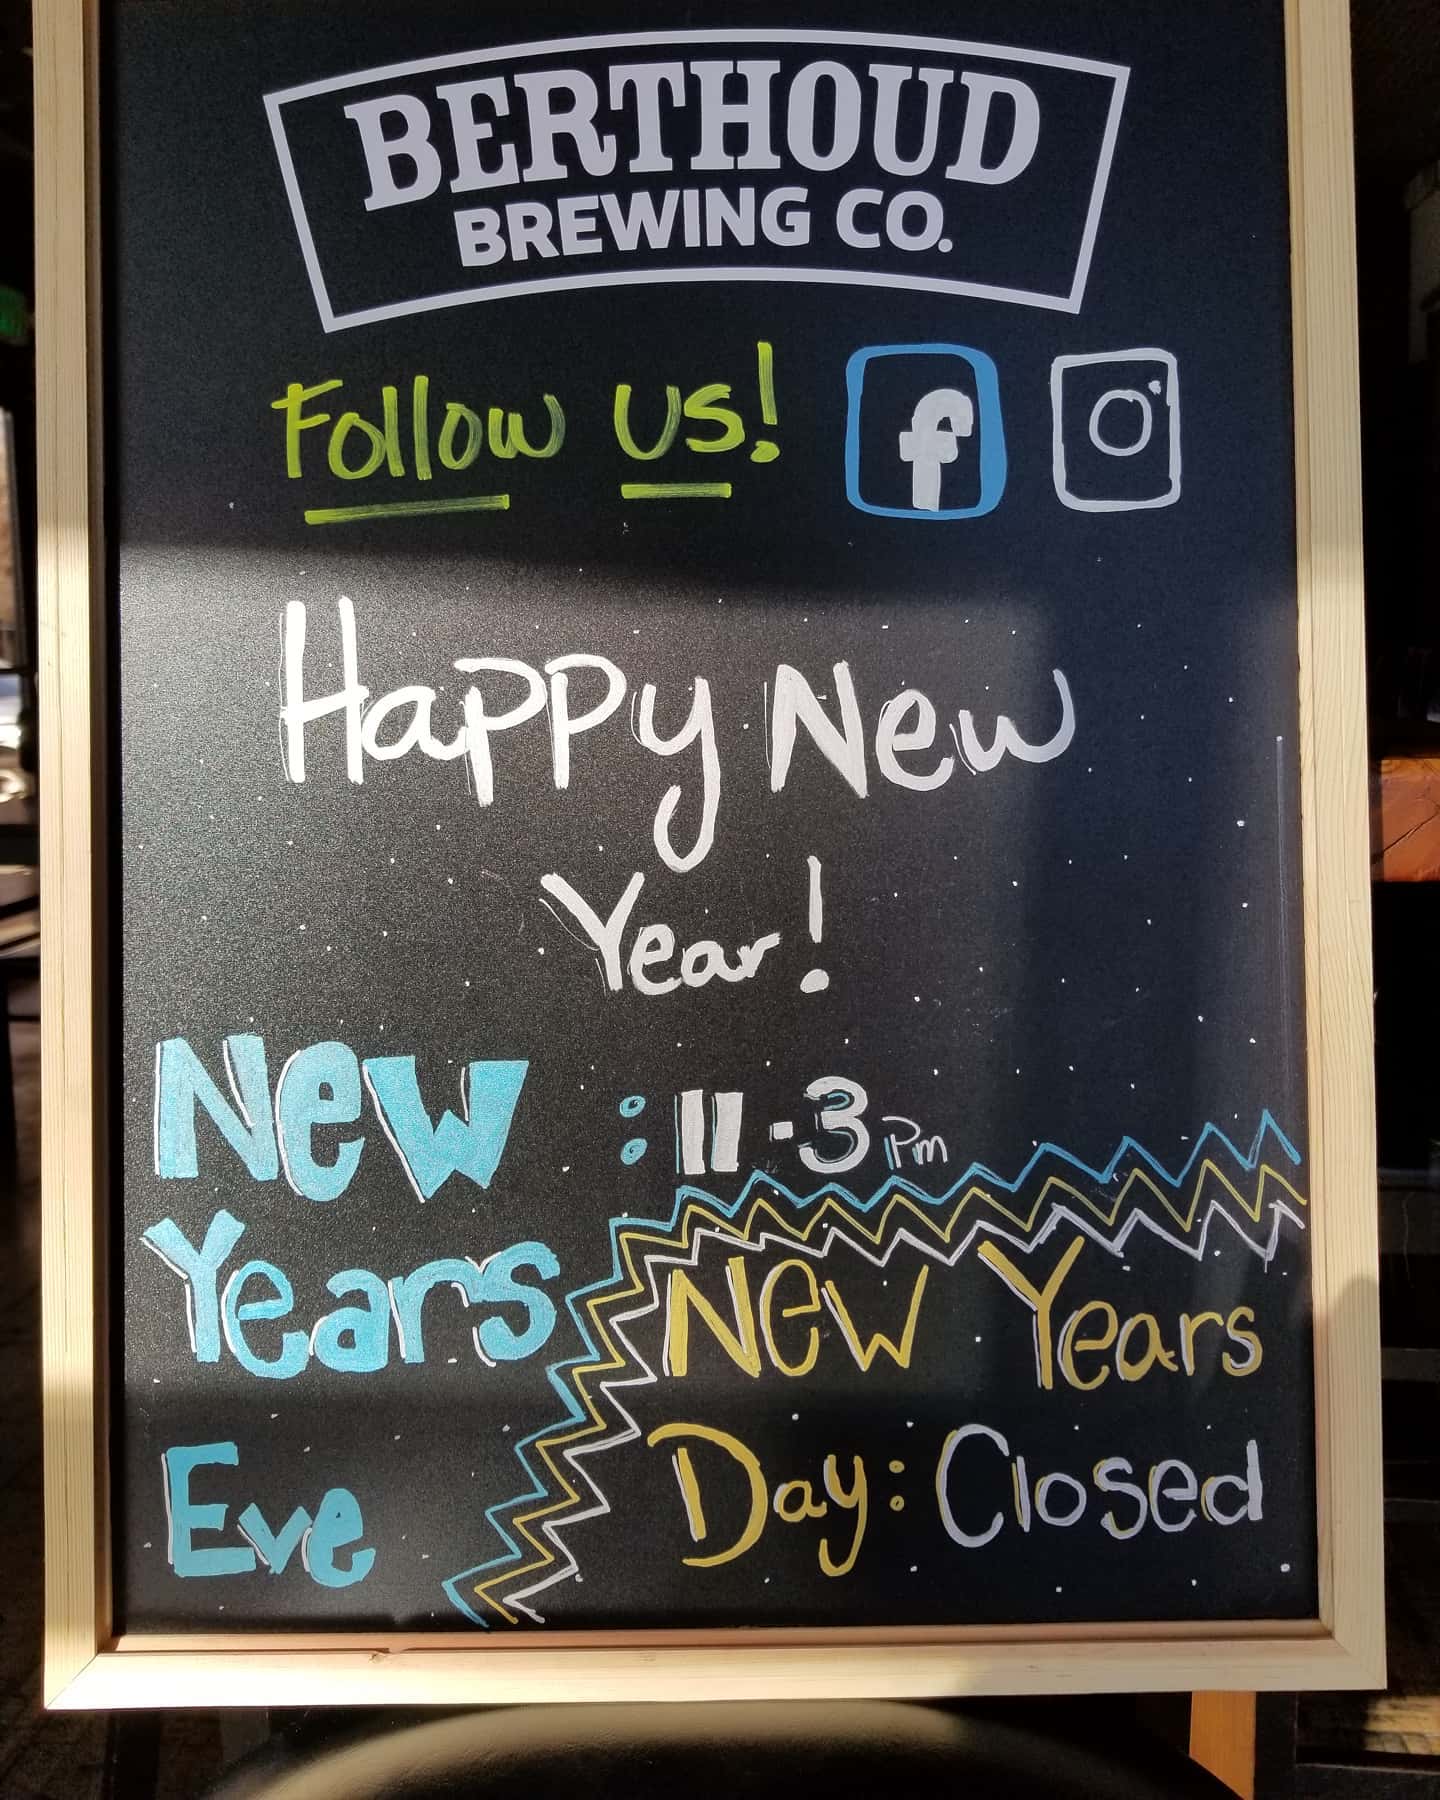 BERTHOUD
BREWING CO.
Follow us!
Happy New
Year!
New
Years
Eve
: 11-3 Pm
New Years
Day: Closed